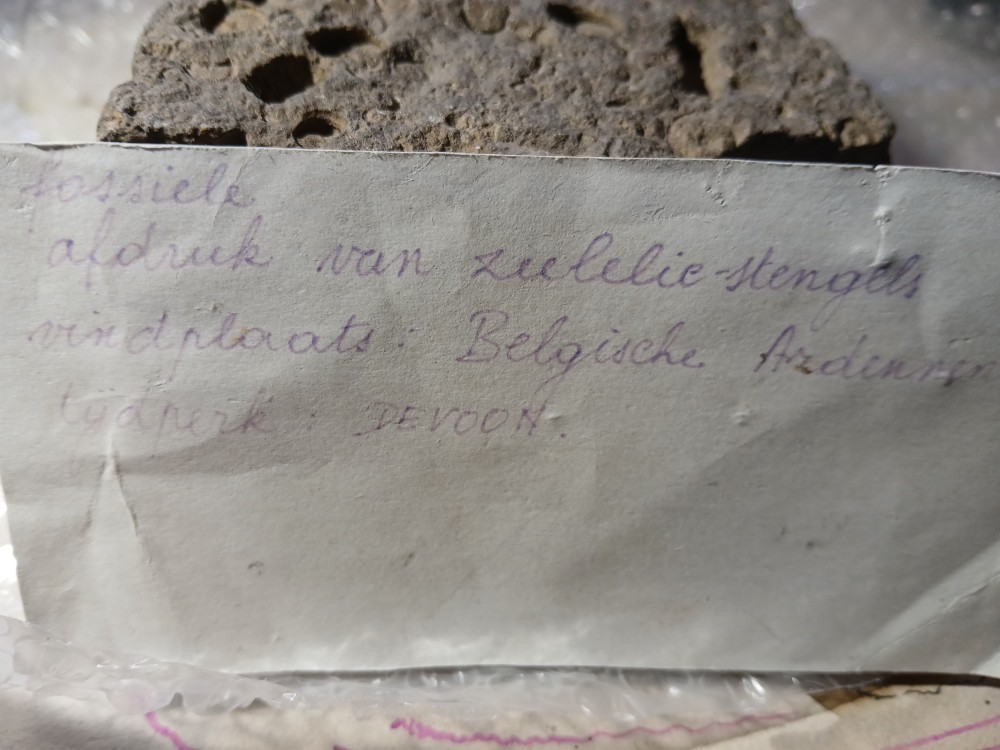 fossiele
afdruk van zeelelie-stengels
vindplaats: Belgische Ardennen
tijdperk: DEVOON.